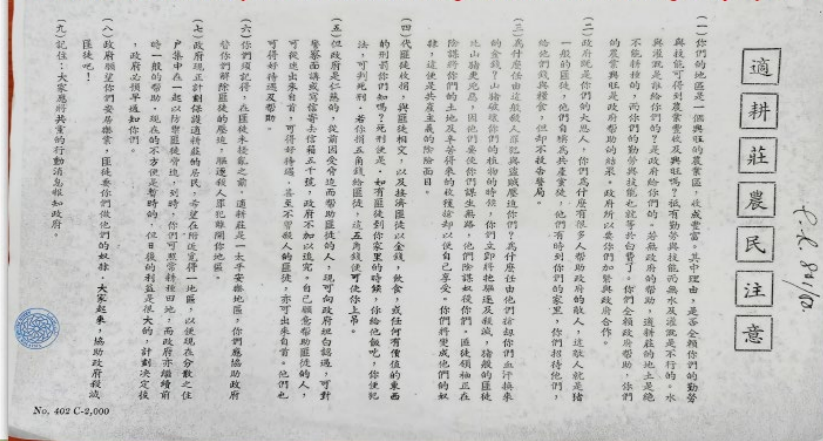 適耕莊農民注意
P.R. 84/52
(一)你們的地區是一個興旺的農業區,收成豐富。其中理由,是否全賴你們的勤勞
與技能可得到農業豐收及興旺嗎?祗有勤勞與技能而無水及灌溉是不行的。水
與灌溉是誰給你們的?是政府給你們的。若無政府的幫助,適耕莊的地土是絕
不能耕種的,而你們的勤勞與技能也就等於白費了。你們全賴政府幫助,你們
的農業興旺是政府幫助的結果。政府所以要你們加緊與政府合作。
(二)政府既是你們的大恩人,你們爲什麼有很多人幫助政府的敵人,這敵人就是豬
一般的匪徒,他們自稱爲共產黨徒,他們有時到你們的家里,你們招待他們,
給他們錢與糧食,但却不報告警局。
(三)爲什麼任由這般殺人罪犯與盜賊壓迫你們?爲什麼任由他們搶刧你們血汗換來
的金錢?山豬破壞你們的植物的時候,你們立卽將牠驅逐及殺滅,豬般的匪徒
比山豬更兇惡,因他們要使你們謀生無路,他們陰謀奴役你們。匪徒領袖正在
陰謀將你們的土地及辛苦得來的收穫搶刧以便自己享受。你們將變成他們的奴
隸,這便是共產主義的陰險面目。
(四)代匪徒收捐,與匪徒相交,以及接濟匪徒以金錢,飲食,或任何有價值的東西
的刑罰你們知嗎?死刑便是。如有匪徒到你家里的時候,你給他飯吃,你便犯
法,可判死刑。若你捐五角錢給匪徒,這五角錢便可使你上吊。
(五)但政府是仁慈的,從前因受脅迫而幫助匪徒的人,現可向政府坦白認過,可對
警察面講或寫信寄去信箱五千號,政府不加以追究。自己願意幫助匪徒的人,
可從速出來自首,可得好待遇,甚至不曾殺人的匪徒,亦可出來自首。他們也
可得好待遇及幫助。
(六)你們須記得,在匪徒未擾亂之前,適耕莊是一太平安樂地區,你們應協助政府
替你們解除匪徒的壓迫,驅逐殺人罪犯離開你地區。
(七)政府現正計劃保護適耕莊的居民,希望在附近覓得一地區,以便現在分散之住
戶集中在一起以防禦匪徒脅迫,到時,你們可照常耕種田地,而政府亦繼續前
時一般的幫助。現在的不方便是暫時的,但日後的利益是很大的,計劃决定後
,政府必預早通知你們。
(八)政府願望你們安居樂業,匪徒要你們做他們的奴隸。大家起來,協助政府殺滅
匪徒吧!
(九)記住:大家應將共黨的行動消息報知政府。
No. 402 C-2,000